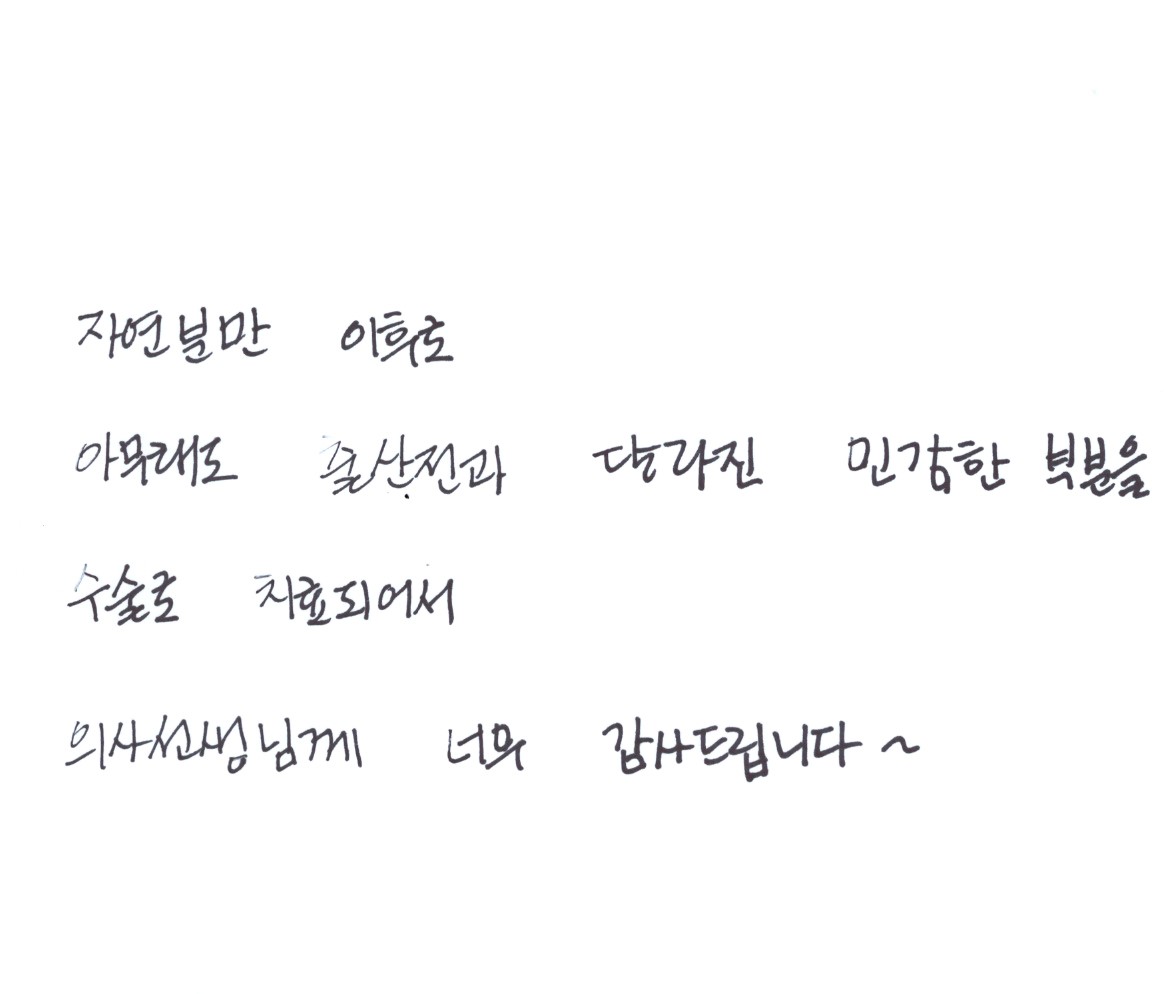 자연분만 이후로
아무래도 출산전과 달라진 민감한 부분을
수술로 치료되어서
의사선생님께 너무 감사드립니다~